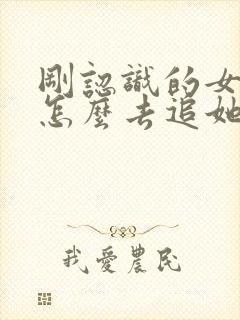 剛認識的女
怎麼去追她
我愛農民